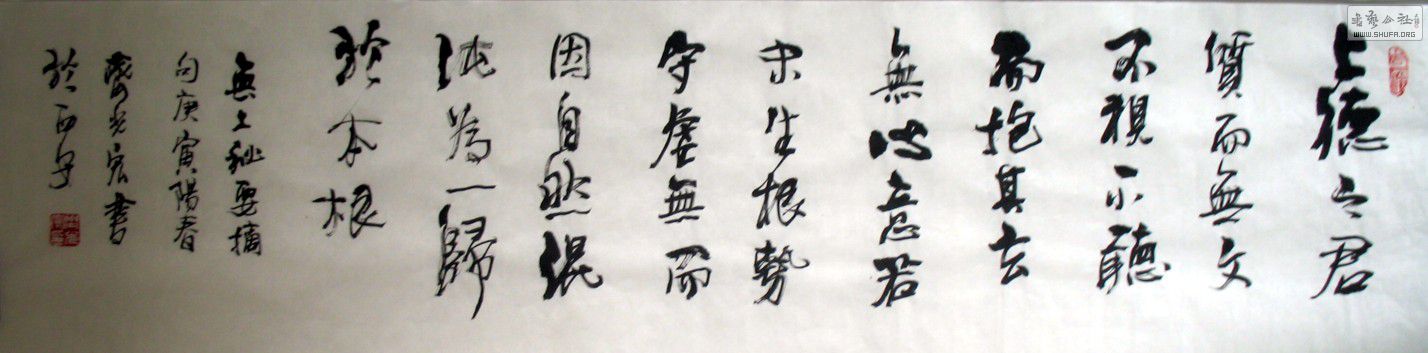 上德之君
質而無文
不視不聽
而抱其玄
無心意若
未生根勢
守虛無而
因自然混
沌為一歸
於本根
無上秘要摘
句庚寅陽春
光宏書
於西
書藝公社
WWW.SHUFA.ORG